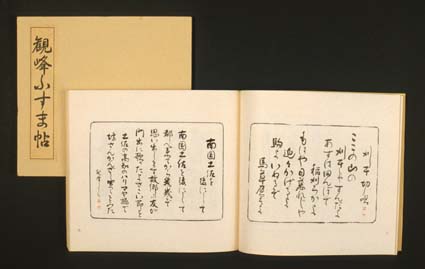 観峰ふすま帖
刈干切唄
ここの山の
刈干しゃすんだよ
あすは田んぼで
稲刈ろかよ
もはや日暮れじゃ
追々かげるよ
駒よいぬるぞ
南国土佐を
後にして
南国土佐を後にして
都へ来てから幾歳ぞ
思い出します故郷の友が
門出に歌ったよさこい節を
土佐の高知のハリマヤ橋で
坊さんかんざし買うをみた